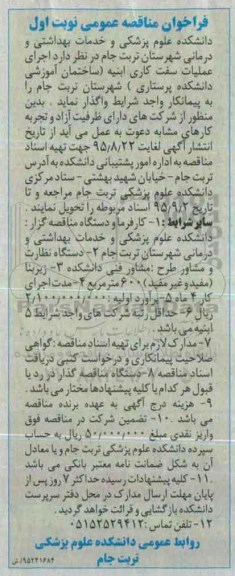 فراخوان مناقصه عمومی نوبت اول
دانشکده علوم پزشکی و خدمات بهداشتی و
درمانی شهرستان تربت جام در نظر دارد اجرای
عملیات سفت کاری ابنیه (ساختمان آموزشی
دانشکده پرستاری ) شهرستان تربت جام را
به پیمانکار واجد شرایط واگذار نماید . بدین
منظور از شرکت های دارای ظرفیت آزاد و تجربه
کارهای مشابه دعوت به عمل می آید از تاریخ
انتشار آگهی لغایت ۹۵/۸/۲۲ جهت تهیه اسناد
مناقصه به اداره امور پشتیبانی دانشکده به آدرس
تربت جام - خیابان شهید بهشتی - ستاد مرکزی
دانشکده علوم پزشکی تربت جام مراجعه و تا
تاریخ ۹۵/۹/۲ اسناد مربوطه را تحویل نمایند :
سایر شرایط : ۱- کارفرما و دستگاه مناقصه گزار :
دانشکده علوم پزشکی و خدمات بهداشتی و
درمانی شهرستان تربت جام ۲- دستگاه نظارت
و مشاور طرح :مشاور فنی دانشکده ۳- زیربنا
(مفید و غیر مفید) ۶۰۰ مترمربع ۴-مدت اجرای
کار ۴ ماه ۵-برآورد اولیه : ۲/۱۰۰/۰۰۰/۰۰۰
ریال ۶- حداقل رتبه شرکت های واجد شرایط ۵
ابنیه می باشد .
۷- مدارک لازم برای تهیه اسناد مناقصه :گواهی
صلاحیت پیمانکاری و درخواست کتبی دریافت
اسناد مناقصه ۸-دستگاه مناقصه گذار در رد یا
قبول هر کدام یا کلیه پیشنهادها مختار می باشد .
۹- هزینه درج آگهی به عهده برنده مناقصه
می باشد . ۱۰- تضمین شرکت در مناقصه فوق
واریز نقدی مبلغ ۵۰/۰۰۰/۰۰۰ ریال به حساب
سپرده دانشکده علوم پزشکی تربت جام و یا معادل
آن به شکل ضمانت نامه معتبر بانکی می باشد
۱۱- کلیه پیشنهادات رسیده حداکثر ۷ روز پس از
پایان مهلت ارسال مدارک در محل دفتر سرپرست
دانشکده بازگشایی و قرائت خواهد گردید.
۱۲- تلفن تماس : ۰۵۱۵۲۵۲۹۴۱۲
روابط عمومی دانشکده علوم پزشکی
تربت جام
۹۵۲۴۱۶۸۴/ش